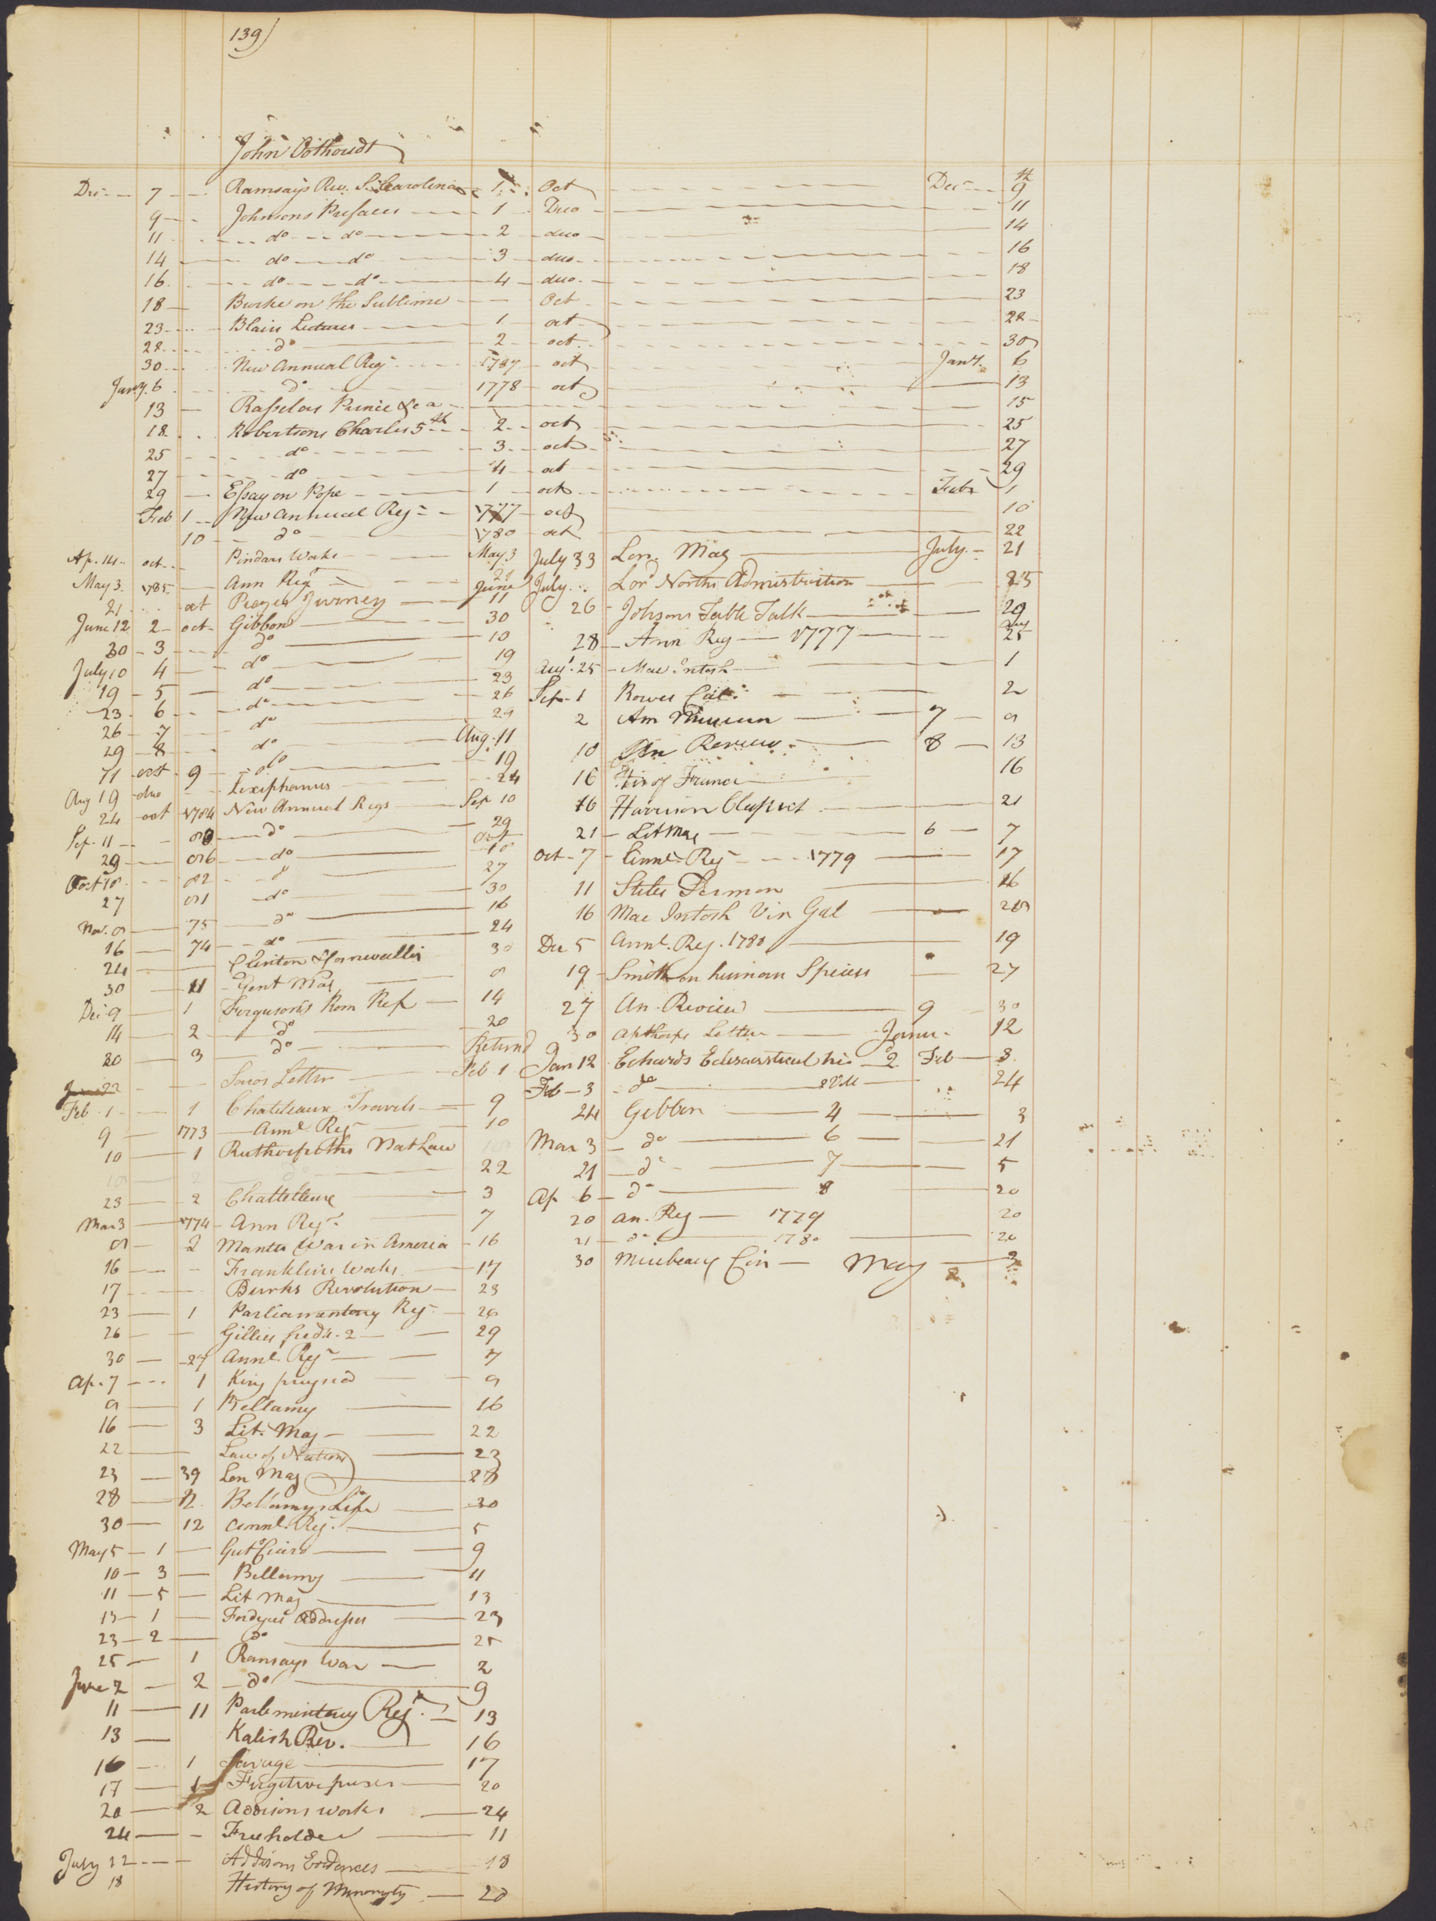 139)
John Oothoudt
Dec 7 Ramsays Rev. S. Carolina 1 Oct Dec 9
9 Johnsons Prefaces 1 Duo 11
11 do do 2 duo 14
14 do do 3 duo 16
16 do do 4 duo 18
18 Burke on the Sublime Oct 23
23 Blairs Lectures 1 oct 28
28 do 2 oct 30
30 New Annual Reg 1787 oct Jany 6
Jany 6 do 1778 oct 13
13 Rasselas Prince &ca 15
18 Robertsons Charles 5th 2 oct 25
25 do 3 oct 27
27 do 4 oct 29
29 Essay on Pope 1 oct Feb 1
Feb 1 New Annual Reg 1777 oct 10
10 do 1780 oct 22
Ap. 14 oct Pindars Works May 3
May 3 1785 Ann Regr 21
21 oct Pages Jurney June 11
June 12 2 oct Gibbons 30
30 3 do 10
July 10 4 do 19
19 5 do 23
23 6 do 26
26 7 do 29
29 8 do Aug. 11
11 oct 9 do 19
Aug 19 duo Lexiphanes 24
24 oct 1784 New Annual Regs Sep 10
Sep. 11 do 29
29 do Oct 10
Oct 10 82 do 27
27 81 do 30
Nov. 75 do 16
16 74 do 24
24 Clinton & Cornwallis 30
30 11 Gent Mag 9
Dec 9 1 Fergusons Rom Rep 14
14 2 do 20
20 3 do Returnd
Jan 22 Letter Feb 1
Feb 1 1 Chatteleaux Travels 9
9 1773 Annl Reg 10
10 1 Rutherfoths Nat Law
22
23 2 Chatteleux 3
Mar 3 1774 Ann Reg. 7
9 2 Mantes War in America 16
16 Franklins Works 17
17 Burks Revolution 23
23 1 Parliamentary Reg 26
26 Gillies fredk. 2 29
30 27 Annl. Reg 7
Ap. 7 1 King 9
9 1 Bellamy 16
16 3 Lit. Mag 22
22 Law of Nations 23
23 39 Lon Mag 28
28 2 Bellamys Life 30
30 12 Annl. Reg. 5
May 5 1 9
10 3 Bellamy 11
11 5 Lit Mag 13
13 1 Fordyces Addresses 23
23 2 do 25
25 1 Ramsays War 2
June 2 2 do 9
11 11 Parlementary Reg. 13
13 Kalish Rev. 16
16 1 Savage 17
17 1 Fugitive pieces 20
20 2 Addisons works 24
24 Freeholder 11
July 12 Addisons Evidences 18
18 History of Minority 20
July 33 Lon. Mag July 21
July Lord Norths Administration 25
26 Johsons Table Talk 29
28 Ann Reg 1777 Aug 25
Augt. 25 Mac Intosh 1
Sep. 1 Rowes 2
2 Am Museum 7 9
10 An Review 8 13
16 His of France 16
16 Harrison 21
21 Lit Mag 6 7
Oct 7 Annl. Reg 1779 17
11 Stiles Sermon 16
16 Mac Intosh Vin Gal 20
Dec 5 Annl. Reg. 1780 19
19 Smith on human Species 27
27 An. Review 9 30
30 Apthorps Letter Janu. 12
Jan 12 Echards Eclesiastical his 2 Feb 3
Feb 3 do 2 Vol 24
24 Gibbon 4 3
Mar 3 do 6 21
21 do 7 5
Ap 6 do 8 20
20 an. Reg 1779 20
21 do 1780 20
30 May 3